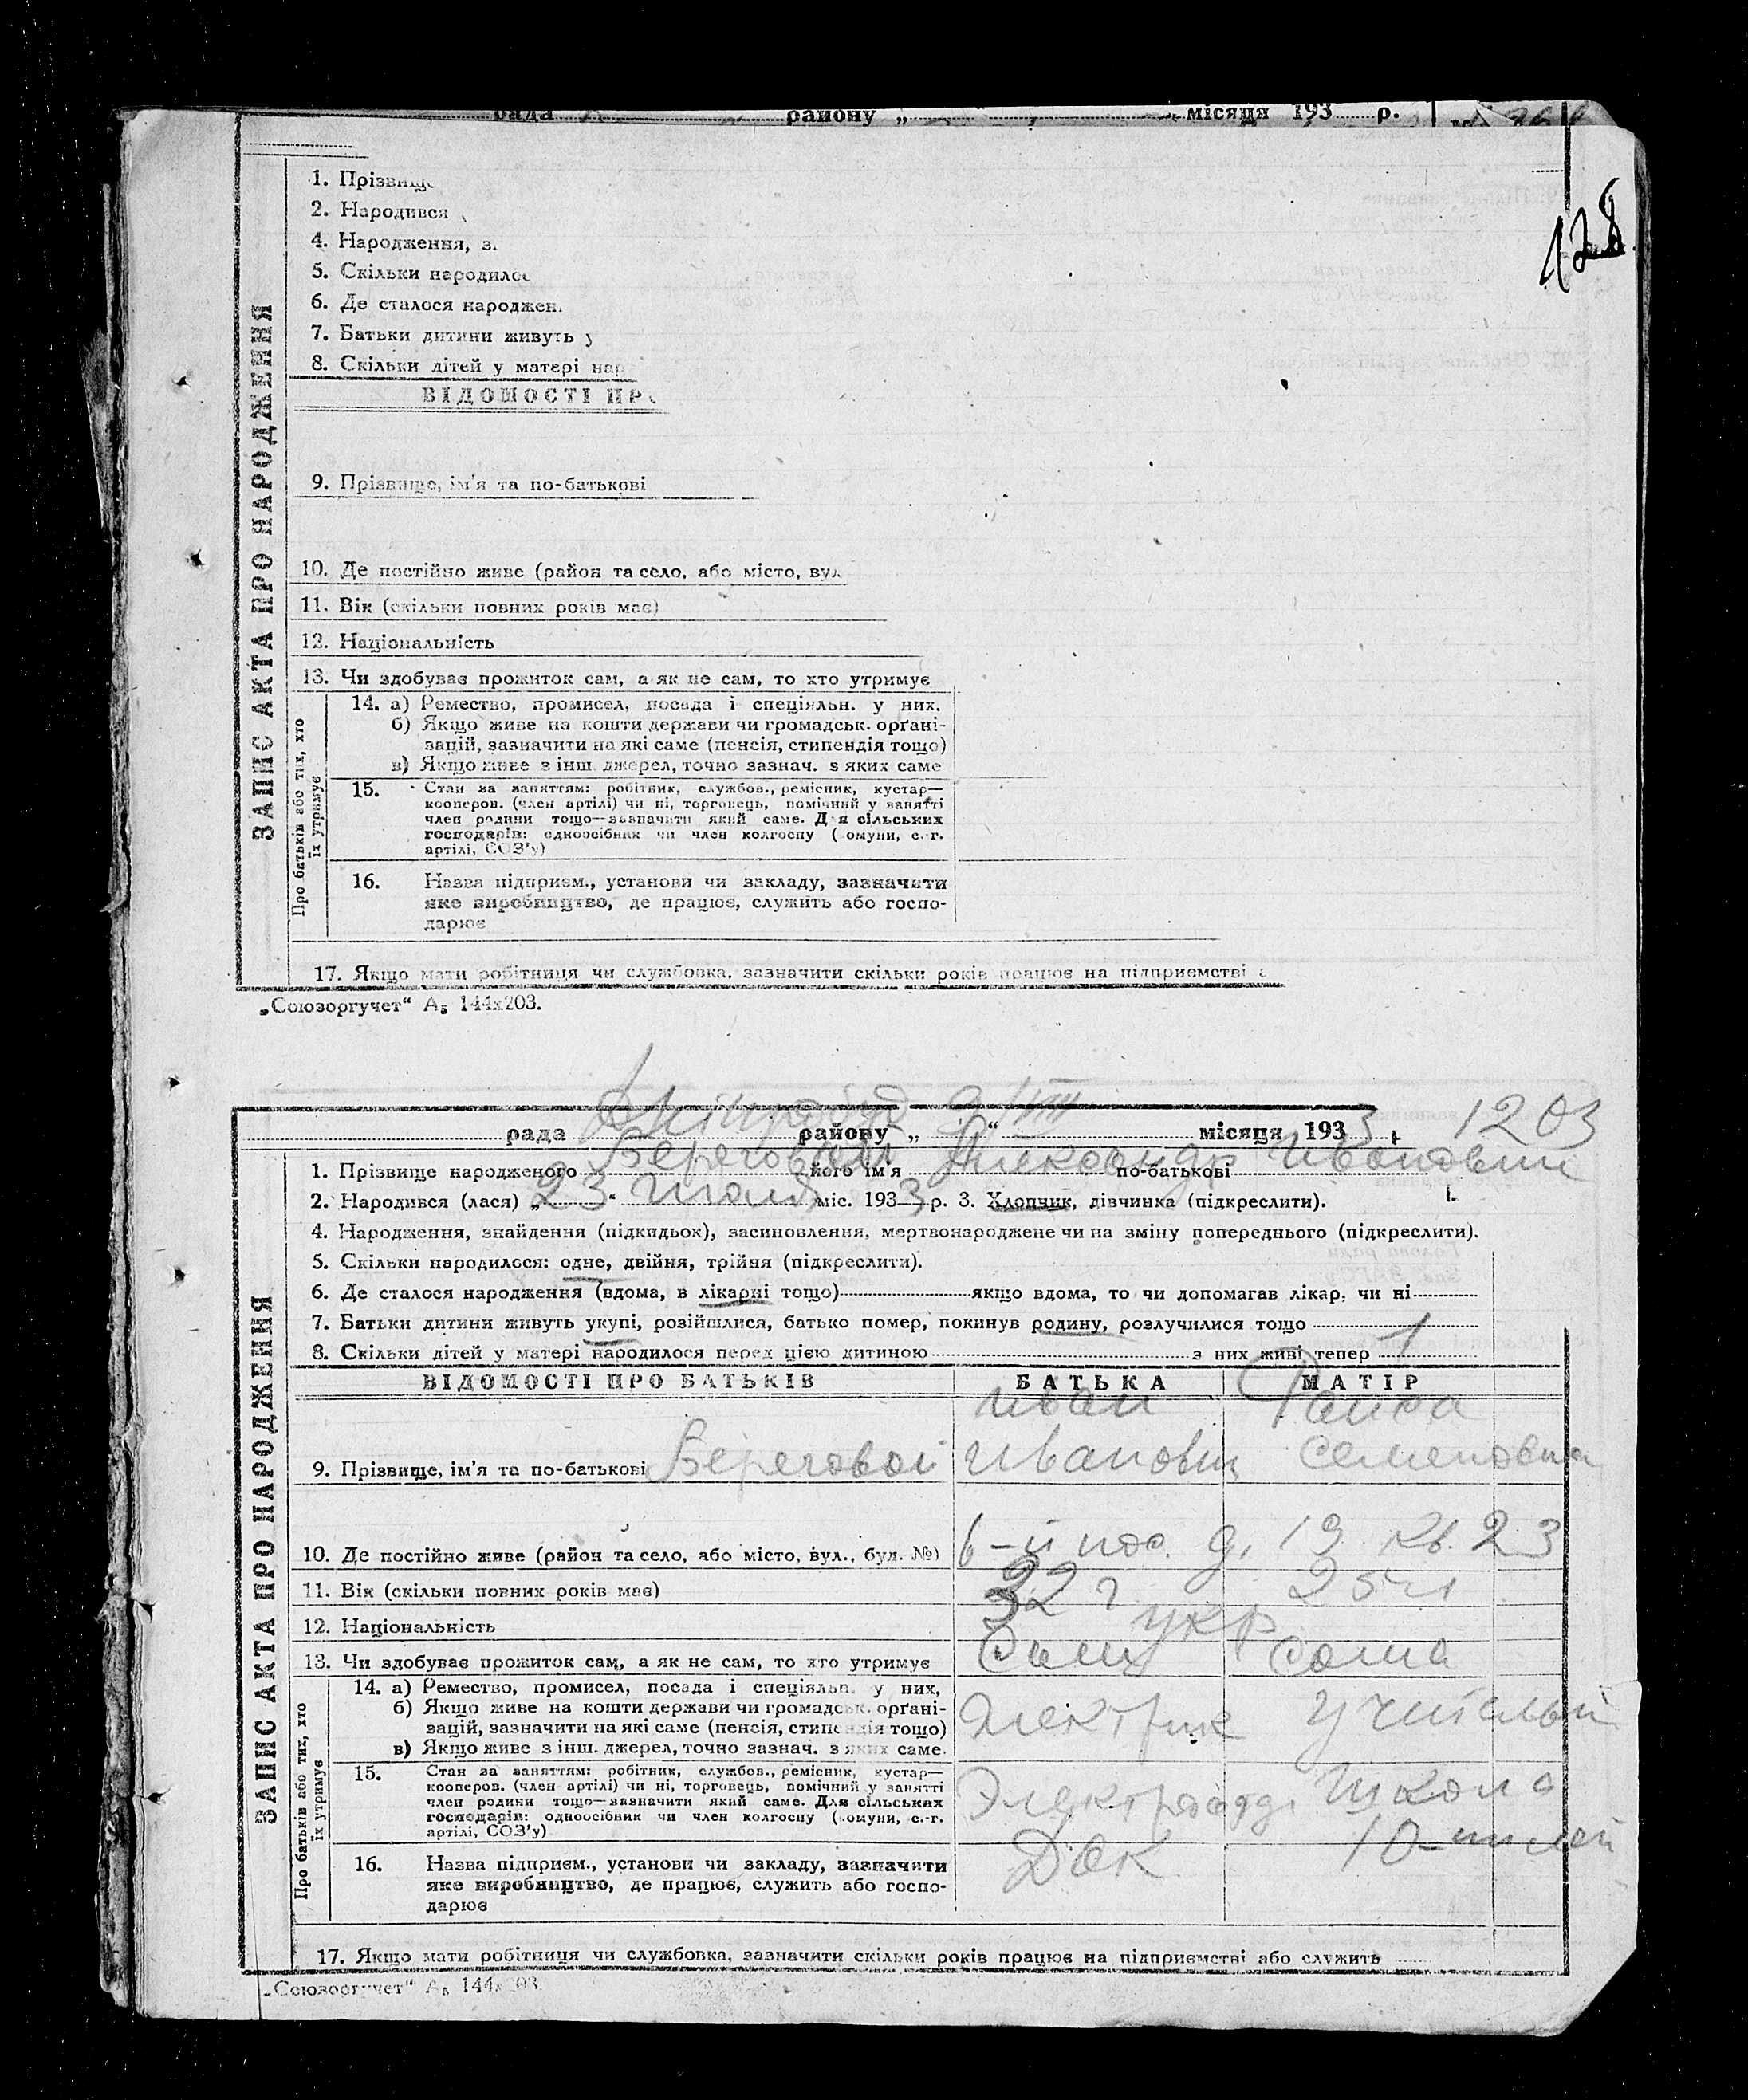 рада району „ місяця 193 р.
128
ЗАПИС АКТА ПРО НАРОДЖЕННЯ
1. Прізвищ
2. Народився
4. Народження, з
5. Скільки народилос
6. Де сталося народжен
7. Батьки дитини живуть у
8. Скільки дітей у матері нар
ВІДОМОСТІ ПРО
9. Прізвище, ім'я та по-батькові
10. Де постійно живе (район та село, або місто, вул
11. Вік (скільки повних років має)
12. Національність
13. Чи здобуває прожиток сам, а як не сам, то хто утримує
Про батьків або тих, хто їх утримує
14. а) Ремество, промисел, посада і спеціяльн. у них.
б) Якщо живе на кошти держави чи громадськ. орґані-
зацій, зазначити на які саме (пенсія, стипендія тощо)
в) Якщо живе з інш. джерел, точно зазнач. з яких саме
15. Стан за заняттям: робітник, службов., ремісник, кустар—
кооперов. (член артілі) чи ні, торговець, помічний у занятті
член родини тощо—зазначити який саме. Для сільських
господарів: одноосібник чи член колгоспу (комуни, с.-г.
артілі, СОЗ'у)
16. Назва підприєм., установи чи закладу, зазначити
яке виробництво, де працює, служить або госпо-
дарює
17. Якщо мати робітниця чи службовка, зазначити скільки років працює на підприємстві а
„Союзоргучет“ А₅ 144х203.
рада району „ 9 “ VIII місяця 1933 р. 1203
ЗАПИС АКТА ПРО НАРОДЖЕННЯ
1. Прізвище народженого Береговой його ім'я Александр по-батькові Иванович
2. Народився (лася) „ 23 “ июля міс. 1933 р. 3. Хлопчик, дівчинка (підкреслити).
4. Народження, знайдення (підкидьок), засиновлення, мертвонароджене чи на зміну попереднього (підкреслити).
5. Скільки народилося: одне, двійня, трійня (підкреслити).
6. Де сталося народження (вдома, в лікарні тощо) якщо вдома, то чи допомагав лікар, чи ні
7. Батьки дитини живуть укупі, розійшлися, батько помер, покинув родину, розлучилися тощо
8. Скільки дітей у матері народилося перед цією дитиною з них живі тепер 1
ВІДОМОСТІ ПРО БАТЬКІВ БАТЬКА МАТІР
Иван Раиса
9. Прізвище, ім'я та по-батькові Береговой Иванович Семеновна
10. Де постійно живе (район та село, або місто, вул., буд. №) 6-й пос. д. 19 кв. 23
11. Вік (скільки повних років має) 32 г 25 л
12. Національність укр
13. Чи здобуває прожиток сам, а як не сам, то хто утримує Сам Сама
Про батьків або тих, хто їх утримує
14. а) Ремество, промисел, посада і спеціяльн. у них,
б) Якщо живе на кошти держави чи громадськ. орґані-
зацій, зазначити на які саме (пенсія, стипендія тощо)
в) Якщо живе з інш. джерел, точно зазнач. з яких саме.
Электрик
15. Стан за заняттям: робітник, службов., ремісник, кустар—
кооперов. (член артілі) чи ні, торговець, помічний у занятті
член родини тощо—зазначити який саме. Для сільських
господарів: одноосібник чи член колгоспу (комуни, с.-г.
артілі, СОЗ'у)
Школа
16. Назва підприєм., установи чи закладу, зазначити
яке виробництво, де працює, служить або госпо-
дарює
17. Якщо мати робітниця чи службовка, зазначити скільки років працює на підприємстві або служить
„Союзоргучет“ А₅ 144х203